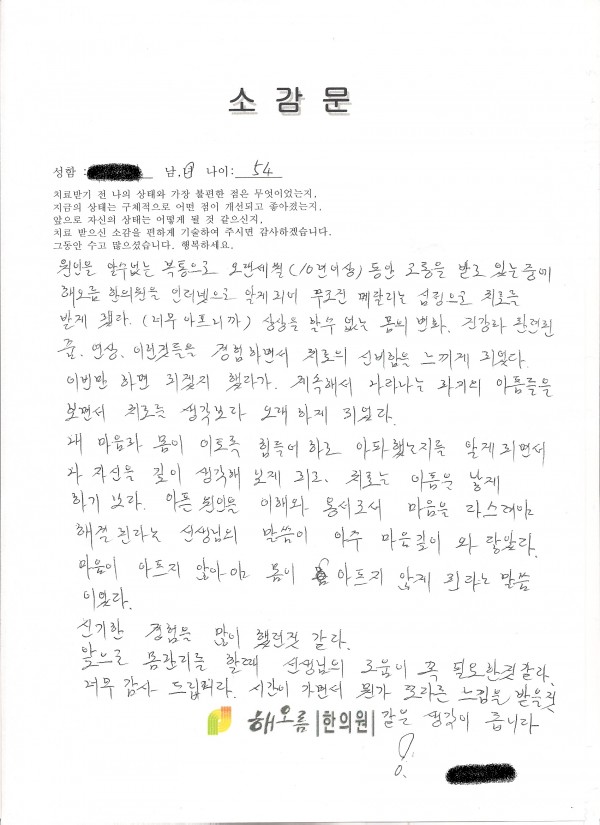 소 감 문
성함 : 남,여 나이: 54
치료받기 전 나의 상태와 가장 불편한 점은 무엇이었는지.
지금의 상태는 구체적으로 어떤 점이 개선되고 좋아졌는지.
앞으로 자신의 상태는 어떻게 될 것 같으신지.
치료 받으신 소감을 편하게 기술하여 주시면 감사하겠습니다.
그동안 수고 많으셨습니다. 행복하세요.
원인을 알수없는 복통으로 오랜세월 (10년이상) 동안 고통을 받고 있는중에
해오름 한의원을 인터넷으로 알게되어 무조건 매달리는 심정으로 치료를
받게 됐다. (너무 아프니까) 상상을 할수 없는 몸의 변화, 건강과 관련된
꿈, 연상, 이런것들을 경험하면서 치료의 신비함을 느끼게 되었다.
이번만 하면 되겠지 했다가. 계속해서 나타나는 과거의 아픔들을
보면서 치료를 생각보다 오래하게 되었다.
내 마음과 몸이 이토록 힘들어 하고 아파했는지를 알게되면서
나 자신을 깊이 생각해 보게 되고, 치료는 아픔을 낳게
하기 보다. 아픈 원인을 이해와 용서로서 마음을 다스려야
해결 된다는 선생님의 말씀이 아주 마음깊이 와 닿았다.
마음이 아프지 않아야 몸이 아프지 않게 된다는 말씀
이었다.
신기한 경험을 많이 했던것 같다.
앞으로 몸관리를 할때 선생님의 도움이 꼭 필요한것같다.
너무 감사 드립니다. 시간이 가면서 뭔가 또다른 느낌을 받을것
같은 생각이 듭니다
해오름 한의원